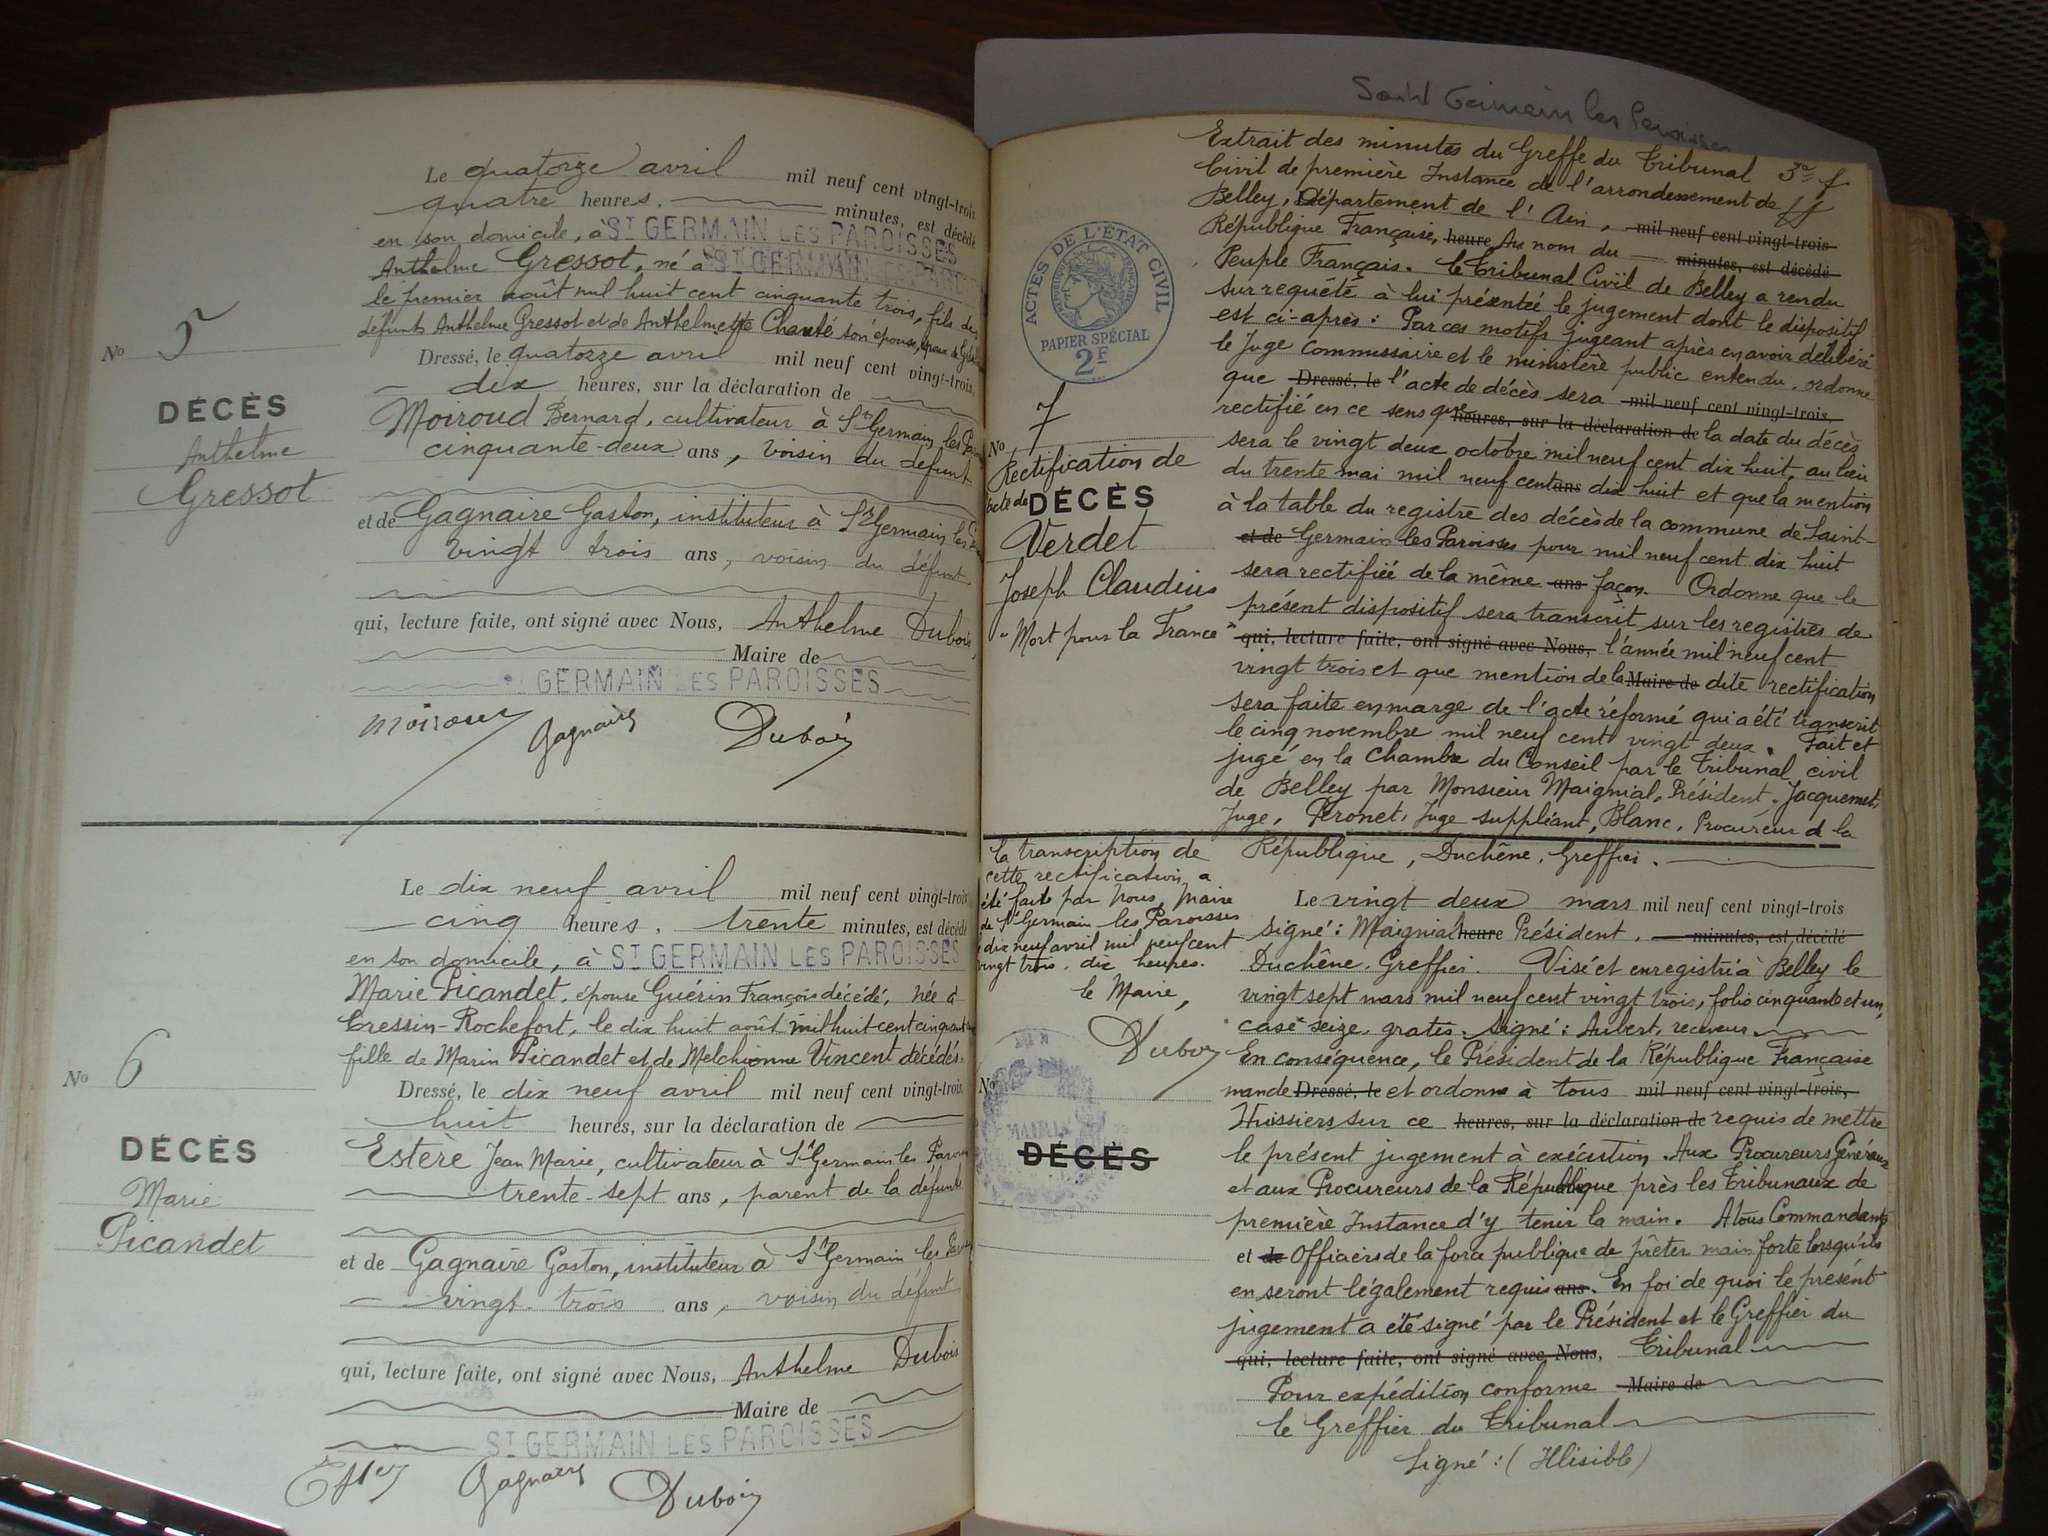 Saint Germain les Paroisses
Le quatorze avril mil neuf cent vingt-trois
quatre heures. minutes, est décédé
en son domicile, à ST GERMAIN LES PAROISSES
Anthelme Gressot, né à ST GERMAIN LES PAROISSES
le premier août mil huit cent cinquante trois, fils de
défunts Anthelme Gressot et de Anthelmette Chanté son épouse, époux de
No 5
Dressé, le quatorze avril mil neuf cent vingt-trois,
dix heures, sur la déclaration de
DÉCÈS
Anthelme
Gressot
Moiroud Bernard, cultivateur à St Germain les Paroisses
cinquante-deux ans, voisin du défunt
et de Gagnaire Gaston, instituteur à St Germain les
vingt trois ans, voisin du défunt
qui, lecture faite, ont signé avec Nous, Anthelme Dubois,
Maire de
ST GERMAIN LES PAROISSES
Moiroud Gagnaire Dubois
Le dix neuf avril mil neuf cent vingt-trois
cinq heures. trente minutes, est décédé
en son domicile, à ST GERMAIN LES PAROISSES
Marie Picandet, épouse Guérin François décédé, née à
Cressin-Rochefort, le dix huit août mil huit cent cinquante
fille de Marin Picandet et de Melchionne Vincent décédés.
No 6
Dressé, le dix neuf avril mil neuf cent vingt-trois,
huit heures, sur la déclaration de
DÉCÈS
Marie
Picandet
Estère Jean Marie, cultivateur à St Germain les Paroisses
trente-sept ans, parent de la défunte
et de Gagnaire Gaston, instituteur à St Germain les
vingt-trois ans, voisin du défunt
qui, lecture faite, ont signé avec Nous, Anthelme Dubois
Maire de
ST GERMAIN LES PAROISSES
Gagnaire Dubois
Extrait des minutes du Greffe du Tribunal
Civil de première Instance de l'arrondissement de
Belley, Département de l'Ain, mil neuf cent vingt-trois
République Française, heure Au nom du minutes, est décédé
Peuple Français. Le Tribunal Civil de Belley a rendu
sur requête à lui présentée le jugement dont le dispositif
est ci-après: Par ces motifs jugeant après en avoir délibéré
le Juge Commissaire et le ministère public entendu, ordonne
que Dressé, le l'acte de décès sera mil neuf cent vingt-trois,
rectifié en ce sens que heures, sur la déclaration de la date du décès
sera le vingt deux octobre mil neuf cent dix huit, au lieu
du trente mai mil neuf cent ans dix huit et que la mention
à la table du registre des décès de la commune de Saint-
et de Germain les Paroisses pour mil neuf cent dix huit
sera rectifiée de la même ans façon. Ordonne que le
présent dispositif sera transcrit sur les registres de
qui, lecture faite, ont signé avec Nous, l'année mil neuf cent
vingt trois et que mention de la Maire de dite rectification
sera faite en marge de l'acte réformé qui a été transcrit
le cinq novembre mil neuf cent vingt deux. Fait et
jugé en la Chambre du Conseil par le Tribunal civil
de Belley par Monsieur Maignial, Président, Jacquemet,
Juge, Peronet, Juge suppléant, Blanc, Procureur de la
République, Duchêne, Greffier.
ACTES DE L'ÉTAT CIVIL
RÉPUBLIQUE FRANÇAISE
PAPIER SPÉCIAL
2F
No 7
Rectification de
acte de DÉCÈS
Verdet
Joseph Claudius
"Mort pour la France"
La transcription de
cette rectification a
été faite par Nous, Maire
de St Germain les Paroisses
dix neuf avril mil neuf cent
vingt trois, dix heures.
le Maire,
Dubois
MAIRIE
No
DÉCÈS
Le vingt deux mars mil neuf cent vingt-trois
signé: Maignial heure Président. minutes, est décédé
Duchêne, Greffier. Visé et enregistré à Belley le
vingt sept mars mil neuf cent vingt trois, folio cinquante et un,
case seize, gratis. Signé: Aubert, receveur.
En conséquence, le Président de la République Française
mande Dressé, le et ordonne à tous mil neuf cent vingt-trois,
Huissiers sur ce heures, sur la déclaration de requis de mettre
le présent jugement à exécution. Aux Procureurs Généraux
et aux Procureurs de la République près les Tribunaux de
première Instance d'y tenir la main. A tous Commandants
et de Officiers de la force publique de prêter main forte lorsqu'ils
en seront légalement requis ans. En foi de quoi le présent
jugement a été signé par le Président et le Greffier du
qui, lecture faite, ont signé avec Nous, Tribunal
Pour expédition conforme Maire de
le Greffier du Tribunal
Signé: (Illisible)